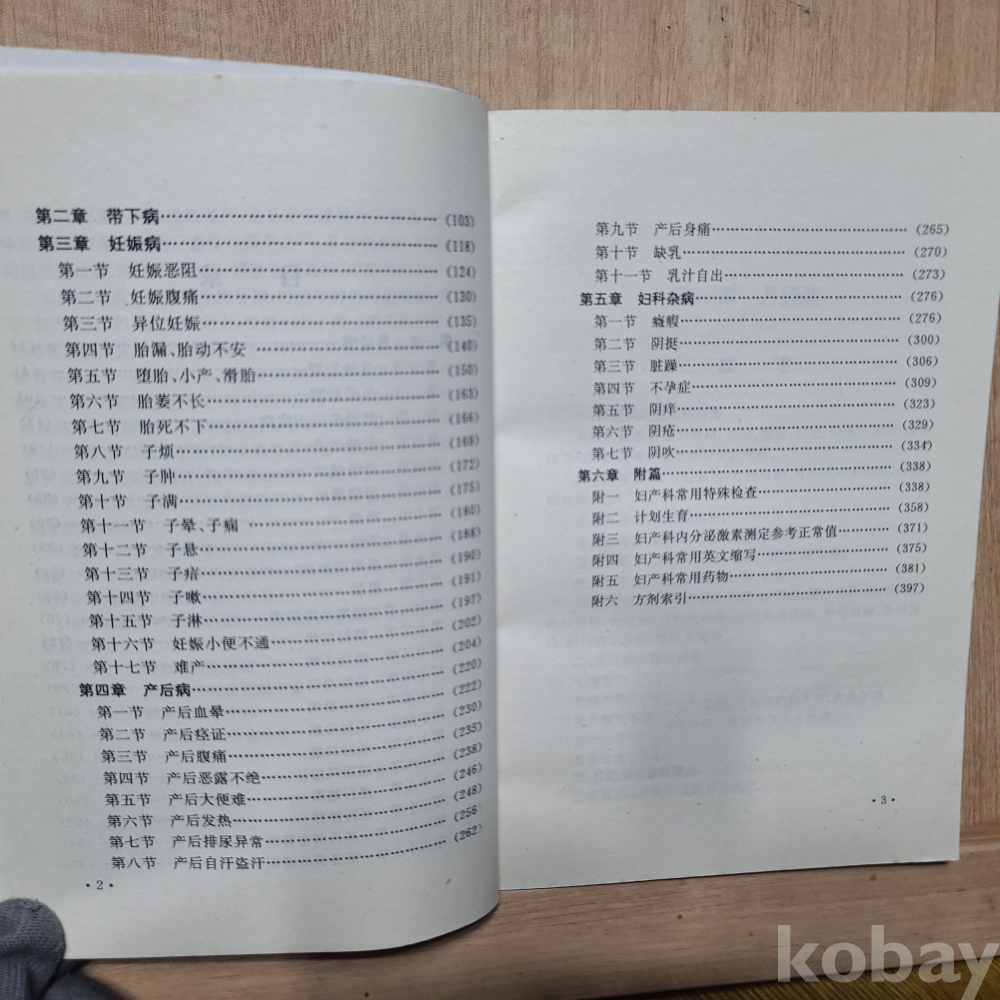 第二章 带下病……………………………………(103)
第三章 妊娠病……………………………………(118)
第一节 妊娠恶阻…………………………………(124)
第二节 妊娠腹痛…………………………………(130)
第三节 异位妊娠…………………………………(135)
第四节 胎漏、胎动不安…………………………(140)
第五节 堕胎、小产、滑胎………………………(150)
第六节 胎萎不长…………………………………(163)
第七节 胎死不下…………………………………(166)
第八节 子烦………………………………………(169)
第九节 子肿………………………………………(172)
第十节 子满………………………………………(175)
第十一节 子晕、子痫……………………………(180)
第十二节 子悬……………………………………(188)
第十三节 子瘖……………………………………(190)
第十四节 子嗽……………………………………(191)
第十五节 子淋……………………………………(197)
第十六节 妊娠小便不通…………………………(202)
第十七节 难产……………………………………(204)
第四章 产后病……………………………………(220)
第一节 产后血晕…………………………………(222)
第二节 产后痉证…………………………………(230)
第三节 产后腹痛…………………………………(235)
第四节 产后恶露不绝……………………………(238)
第五节 产后大便难………………………………(246)
第六节 产后发热…………………………………(248)
第七节 产后排尿异常……………………………(256)
第八节 产后自汗盗汗……………………………(262)
·2·
第九节 产后身痛…………………………………(265)
第十节 缺乳………………………………………(270)
第十一节 乳汁自出………………………………(273)
第五章 妇科杂病…………………………………(276)
第一节 癥瘕………………………………………(276)
第二节 阴挺………………………………………(300)
第三节 脏躁………………………………………(306)
第四节 不孕症……………………………………(309)
第五节 阴痒………………………………………(323)
第六节 阴疮………………………………………(329)
第七节 阴吹………………………………………(334)
第六章 附篇………………………………………(338)
附一 妇产科常用特殊检查………………………(338)
附二 计划生育……………………………………(358)
附三 妇产科内分泌激素测定参考正常值………(371)
附四 妇产科常用英文缩写………………………(375)
附五 妇产科常用药物……………………………(381)
附六 方剂索引……………………………………(397)
·3·
kobay